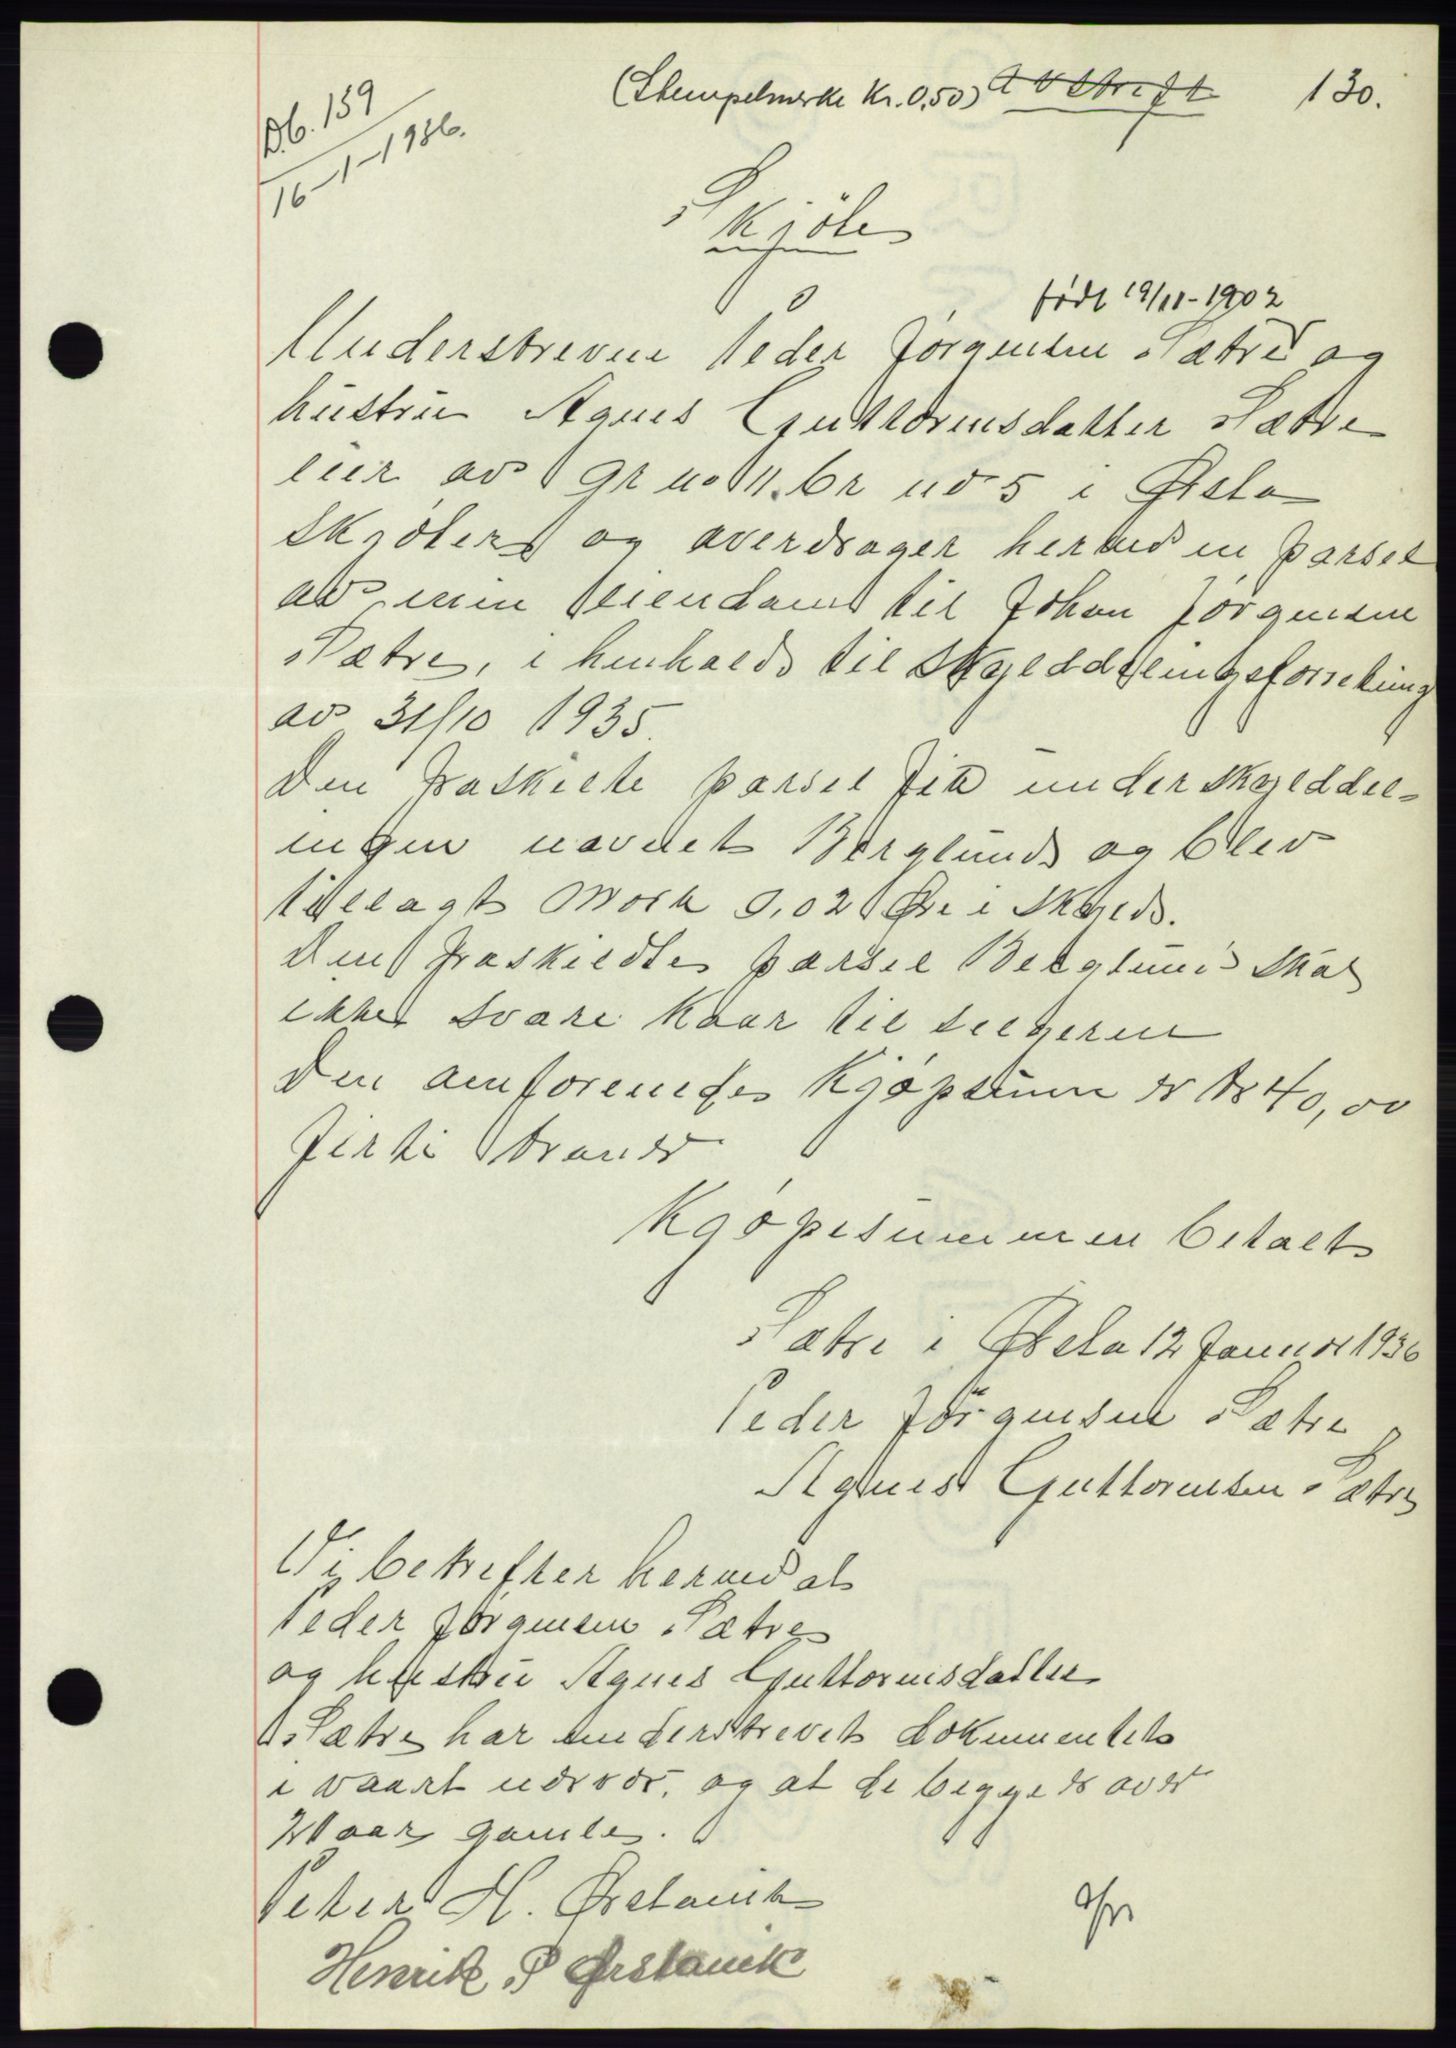 (Stempelmerke Kr. 0,50) Avskrift 130.
Db. 159
16-1-1936.
Skjöte
født 19/11-1902
Underskrevne Peder Jørgensen Sætre og
hustru Agnes Guttormsdatter Sætre
eier av gr no 11. br no 5 i Ørsta
skjøter og overdrager herved en parsel
av min eiendom til Johan Jørgensen
Sætre, i henhold til skylddelingsforretning
av 31/10 1935.
Den fraskilte parsel fik under skylddel-
ingen navnet Berglund og blev
tillagt Mark 0,02 Øre i skyld.
Den fraskildte parsel Berglund skal
ikke svare Kaar til selgeren
Den omforenede Kjøpsum er kr 40,00
firti kroner
Kjøpesummen betalt
Sætre i Ørsta 12 Januar 1936
Peder Jörgensen Sætre
Agnes Guttormsen Sætre
Vi bekrefter herved at
Peder Jørgensen Sætre
og hustru Agnes Guttormsdatter
Sætre har underskrevet dokumentet
i vaart nærvær, og at de begge er over
21 aar gamle.
Peter H. Ørstavik
Henrik P Ørstavik